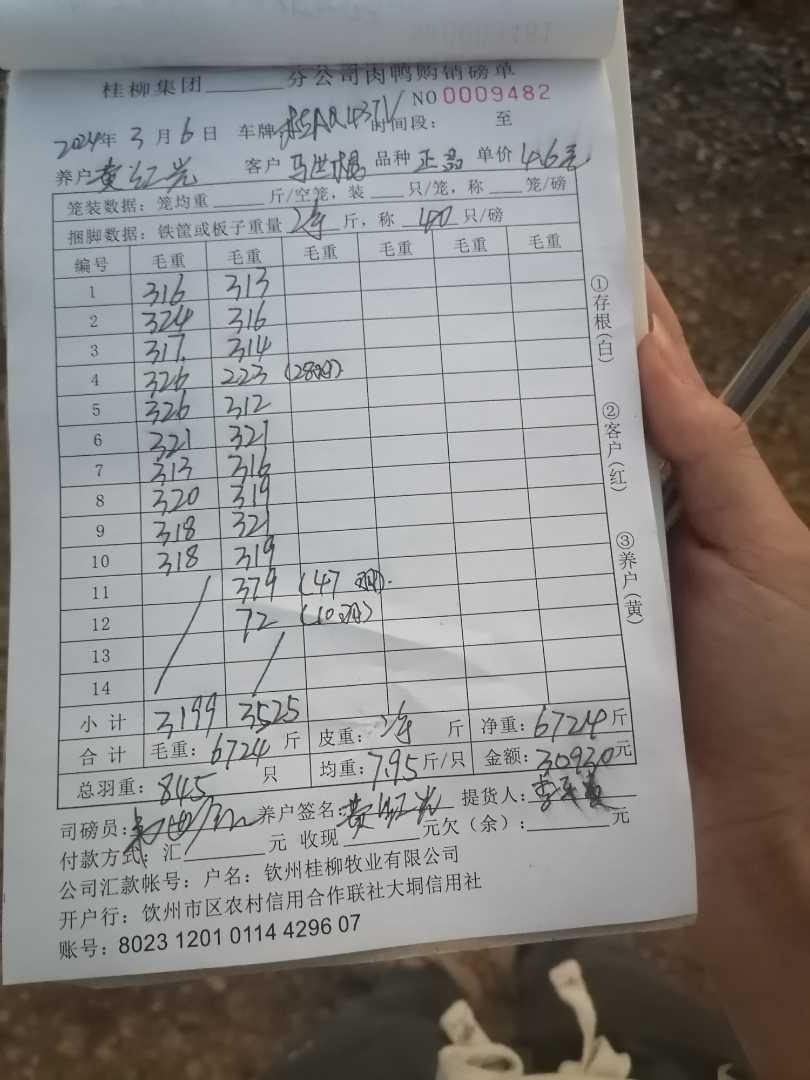 桂柳集团______分公司肉鸭购销磅单
NO 0009482
2024年 3 月 6 日 车牌 时间段: 至
养户 黄红光 客户 马世 品种 正品 单价 4.6元
笼装数据: 笼均重____斤/空笼, 装____只/笼, 称____笼/磅
捆脚数据: 铁筐或板子重量____斤, 称 40 只/磅
编号 毛重 毛重 毛重 毛重 毛重 毛重
1 316 313
2 324 316
3 317 314
4 326 223 (28只)
5 326 312
6 321 321
7 313 316
8 320 319
9 318 321
10 318 319
11 379 (47只)
12 72 (10只)
13
14
小计 3199 3525
合计 毛重: 6724 斤 皮重: 斤 净重: 6724 斤
总羽重: 845 只 均重: 7.95 斤/只 金额: 30930 元
司磅员: 养户签名: 黄红光 提货人:
付款方式: 汇______元 收现______元欠(余):______元
公司汇款帐号: 户名: 钦州桂柳牧业有限公司
开户行: 钦州市区农村信用合作联社大垌信用社
账号: 8023 1201 0114 4296 07
①存根(白)
②客户(红)
③养户(黄)